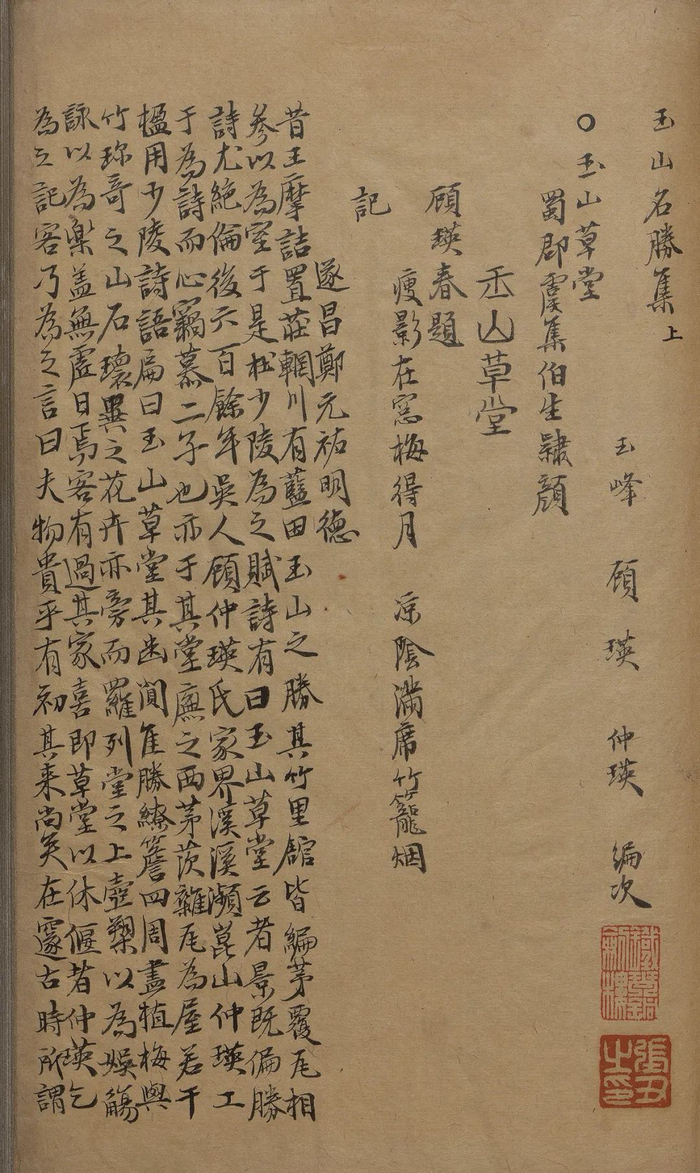 玉山名勝集上
玉峰 顧瑛 仲瑛 編次
○玉山草堂
蜀郡虞集伯生隷顔
玉山草堂
顧瑛春題
瘦影在窓梅得月 凉陰滿席竹籠烟
記
遂昌鄭元祐明德
昔王摩詰置莊輞川有藍田玉山之勝其竹里館皆編茅覆瓦相
參以為室于是杜少陵為之賦詩有曰玉山草堂云者景既偏勝
詩尤絕倫後六百餘年吳人顧仲瑛氏家界溪溪瀕崑山仲瑛工
于為詩而心竊慕二子也亦于其堂廡之西茅茨雜瓦為屋若干
楹用少陵詩語扁曰玉山草堂其幽閒隹勝繚簷四周盡植梅與
竹珎奇之山石瓌異之花卉亦旁而羅列堂之上壺槊以為娛觴
詠以為樂盖無虛日焉客有過其家喜即草堂以休偃者仲瑛乞
為之記客乃為之言曰夫物貴乎有初其来尚矣在邃古時所謂
張丑之印